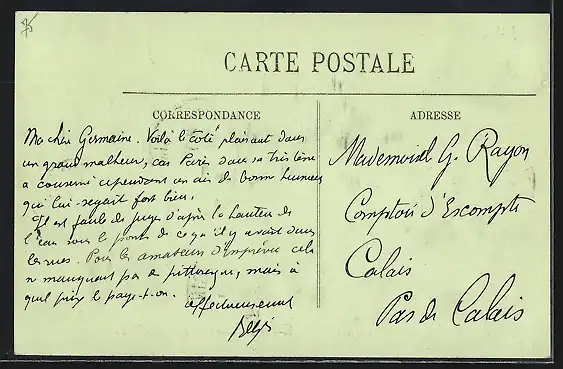 CARTE POSTALE
CORRESPONDANCE
Ma chère Germaine. Voilà le côté plaisant dans
un grand malheur, car Paris dans sa tristesse
a conservé cependant un air de bonne humeur
qui lui seyait fort bien.
Il est facile de juger d'après la hauteur de
l'eau sous les ponts de ce qu'il y avait dans
les rues. Pour les amateurs d'imprévu cela
n manquait pas de pittoresque, mais à
quel prix le paye-t-on.
Affectueusement
ADRESSE
Mademoisel G. Rayon
Comptoir d'Escompte
Calais
Pas de Calais